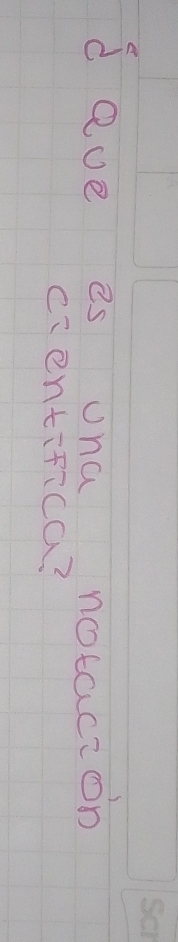 ¿Que es una notación
cientifica?
Scr